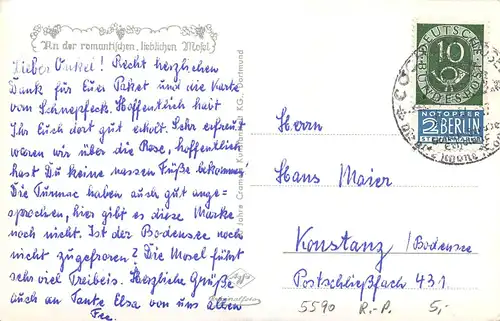 An der romantischen, lieblichen Mosel
Lieber Onkel! Recht herzlichen
Dank für Euer Paket und die Karte
vom Schnepfeck. Hoffentlich habt
Ihr Euch dort gut erholt. Sehr erfreut
waren wir über die Rose, hoffentlich
hast Du keine nassen Füße bekommen.
Die Turmac haben auch gut ange-
sprochen, hier gibt es diese Marke
noch nicht. Ist der Bodensee noch
nicht zugefroren? Die Mosel führt
sehr viel Treibeis. Herzliche Grüße
auch an Tante Elsa von uns allen
Jahre Cramers Kunstanstalt KG., Dortmund
DEUTSCHE
BUNDESPOST
10
NOTOPFER
2 BERLIN
STEUERMARKE
Herrn
Hans Maier
Konstanz/Bodensee
Postschließfach 431
5590 R.-P. 5,-